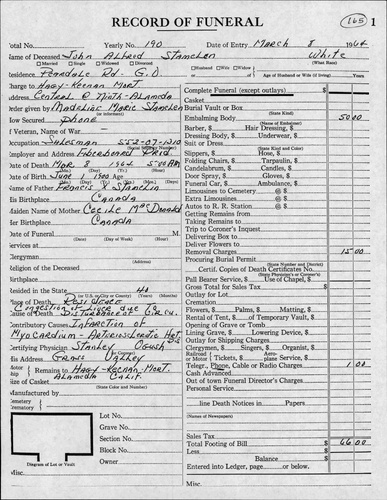 RECORD OF FUNERAL
165
1
Total No.
Yearly No. 190
Date of Entry March 8 1964
Name of Deceased John Alfred Stanchen White
Married Single Widowed Divorced
Husband Wife Widow
(What Race)
Residence Penndale Rd - G.O.
or
Age of Husband or Wife (if living) Years
Charge to Hagy-Keenan Mort.
Address Central @ Ninth-Alameda
Order given by Madeline Marie Stanchen
(or informant)
How Secured Phone
If Veteran, Name of War
Occupation Salesman 552-07-1310
(Social Security Number)
Employer and Address
Date of Death Mar. 8 1964 5:00 AM
Date of Birth June 1 1900 Age
(Mo.) (Day) (Yr.)
Name of Father Francis X Stanchen
His Birthplace Canada
Maiden Name of Mother Cecile MacDonald
Her Birthplace Canada
Date of Funeral M.
(Date) (Day of Week) (Hour)
Services at
Clergyman
Religion of the Deceased
Birthplace
Resided in the State 40
(or U.S. or City or County) (Years) (Months)
Place of Death Residence
Cause of Death Congestion of Liver Due To
Disturbance of Circu.
Contributory Causes Infarction of
Myocardium - Arteriosclerotic Hgt
Certifying Physician Stanley
(or Coroner)
His Address Grass Valley
Remains to Hagy-Keenan Mort.
Alameda Calif
Size of Casket
(State Color and Number)
Manufactured by
Cemetery
Crematory
Lot No.
Grave No.
Section No.
Block No.
Owner
Diagram of Lot or Vault
Misc.
Complete Funeral (except outlays) $
Casket
Burial Vault or Box
(State Kind)
Embalming Body 50 00
(Name of Embalmer)
Barber, $ Hair Dressing, $
Dressing Body, $ Underwear, $
Suit or Dress
(State Kind and Color)
Slippers, $ Hose, $
Folding Chairs, $ Tarpaulin, $
Candelabrum, $ Candles, $
Door Spray, $ Gloves, $
Funeral Car, $ Ambulance, $
Limousines to Cemetery @ $
Extra Limousines @ $
Autos to R. R. Station @ $
Getting Remains from
Taking Remains to
Trip to Coroner's Inquest
Delivering Box to
Deliver Flowers to
Removal Charges 15 00
Procuring Burial Permit
(State Number and District)
Certif. Copies of Death Certificates No.
(State Physician's or Coroner's)
Pall Bearer Service, $ Use of Chapel, $
Gross Total for Sales Tax $
Outlay for Lot
Cremation
Flowers, $ Palms, $ Matting, $
Rental of Tent, $ of Temporary Vault, $
Opening of Grave or Tomb
Lining Grave, $ Lowering Device, $
Outlay for Shipping Charges
Clergyman, $ Singers, $ Organist, $
Railroad or Motor Tickets, $ Aeroplane Service, $
Telegr., Phone, Cable or Radio Charges 1 00
Cash Advanced
Out of town Funeral Director's Charges
Personal Service
line Death Notices in Papers
(Names of Newspapers)
Sales Tax
Total Footing of Bill $ 66 00
Less
Balance $
Entered into Ledger, page or below.
Misc.